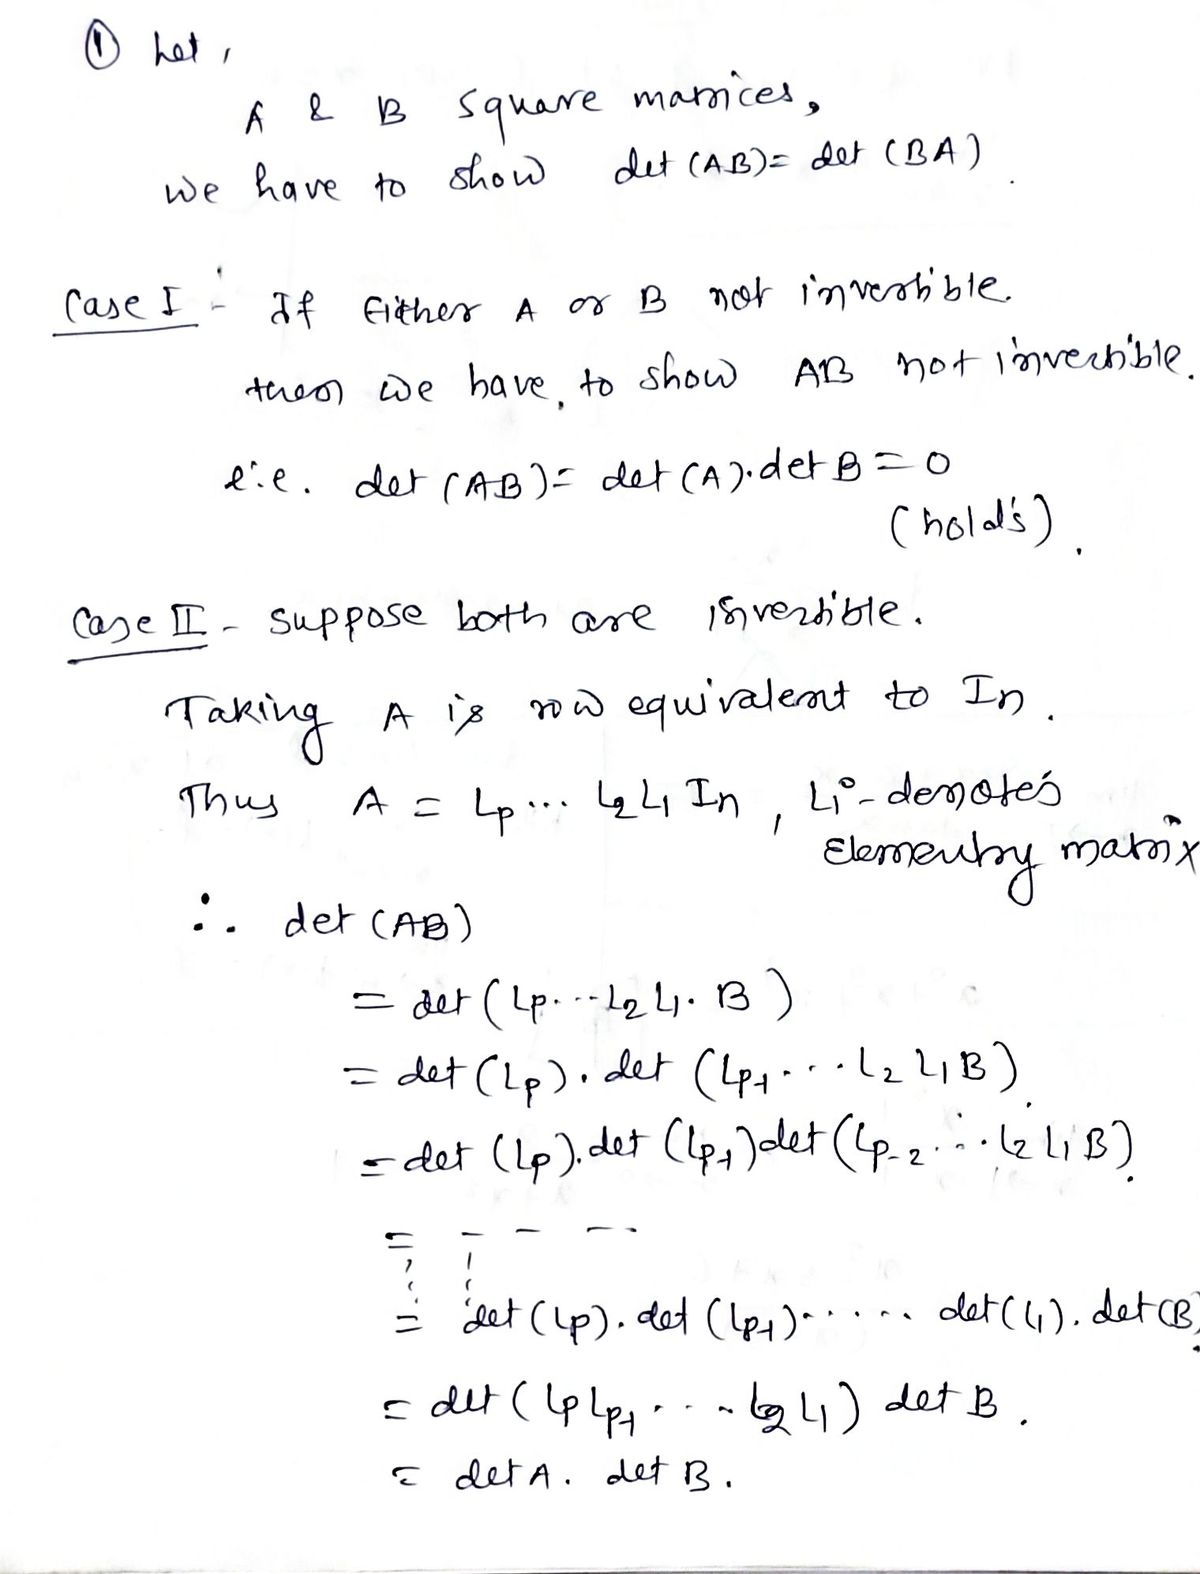 ① Let,
A & B square matrices,
we have to show det (AB) = det (BA).
Case I :- If Either A or B not invertible.
then we have, to show AB not invertible.
i.e. det (AB) = det (A). det B = 0
(hold's).
Case II - suppose both are invertible.
Taking A is row equivalent to In.
Thus A = Lp ... L2 L1 In, Li - denotes
Elementry matrix
∴ det (AB)
= det (Lp. ... L2 L1. B)
= det (Lp). det (Lp-1 .... L2 L1 B).
= det (Lp). det (Lp-1) det (Lp-2 .... L2 L1 B).
= - - - -
= det (Lp). det (Lp-1) ..... det (L1). det (B).
= det (Lp Lp-1 .... L2 L1) det B.
= det A. det B.